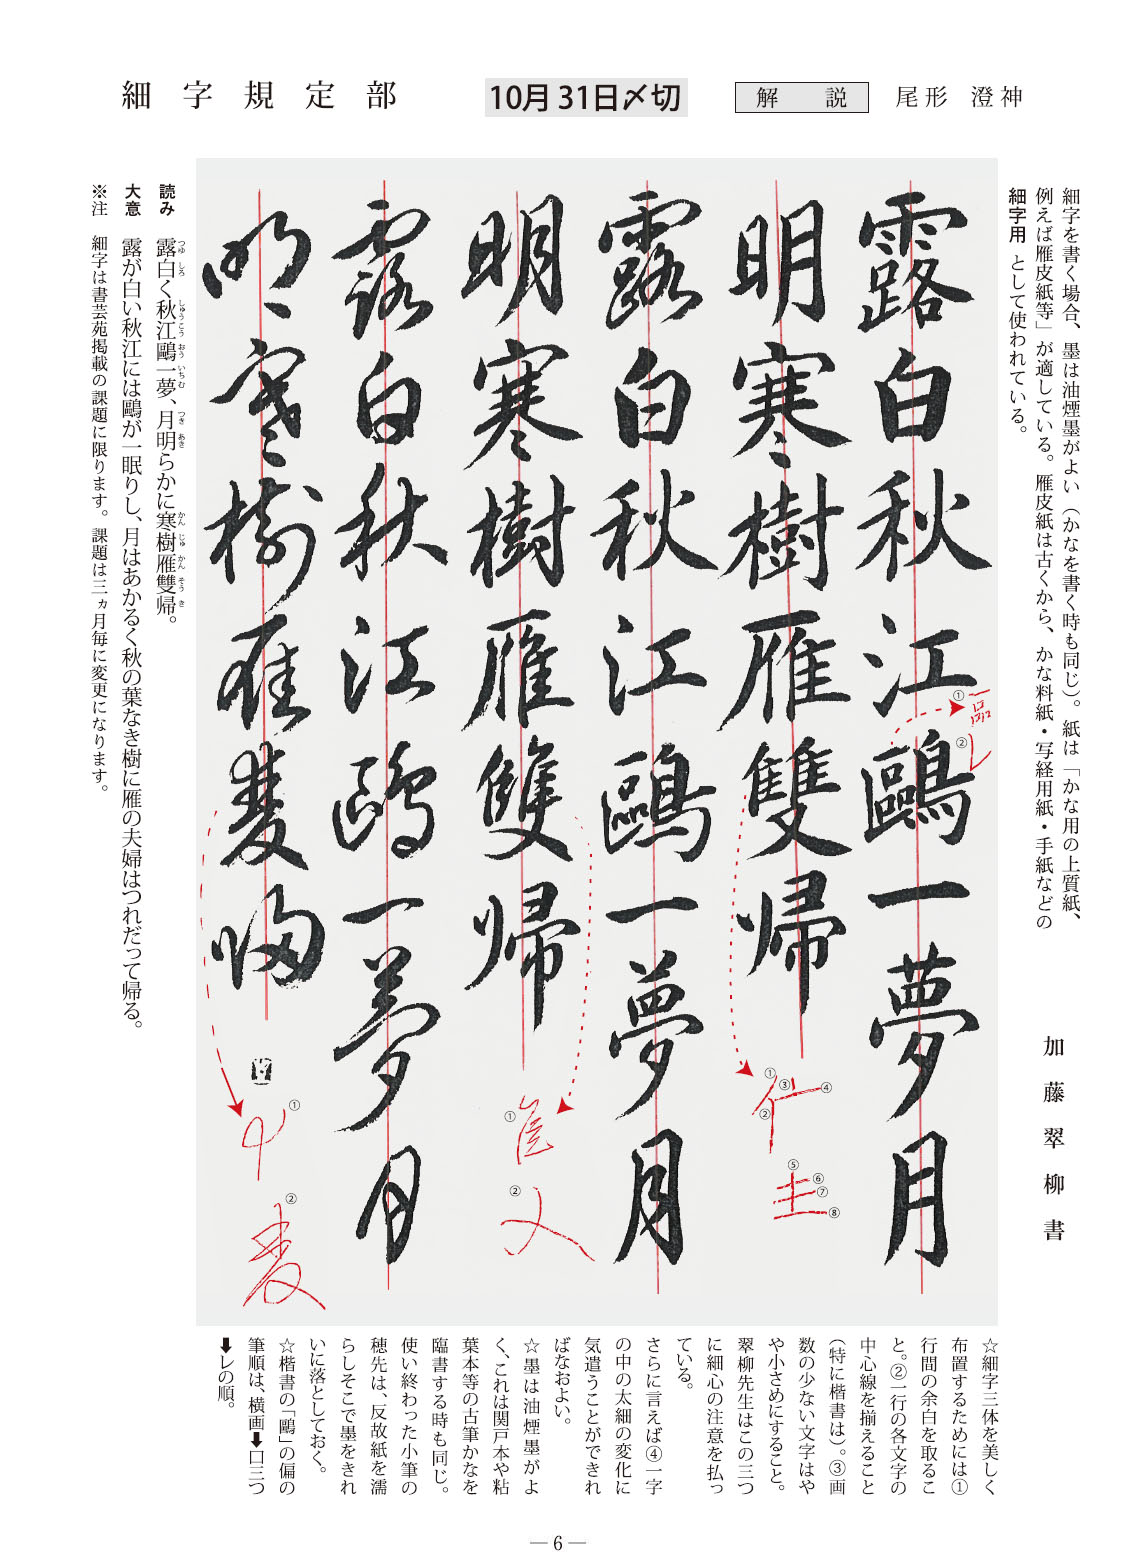 細字規定部
10月31日〆切
解説
尾形 澄神
細字を書く場合、墨は油煙墨がよい（かなを書く時も同じ）。紙は「かな用の上質紙、
例えば雁皮紙等」が適している。雁皮紙は古くから、かな料紙・写経用紙・手紙などの
細字用 として使われている。
加藤翠柳書
露白秋江鷗一夢月
明寒樹雁雙帰
露白秋江鷗一夢月
明寒樹雁雙帰
露白秋江鷗一夢月
明寒樹雁雙帰
① 一品
② レ
①②③④
⑤⑥⑦⑧
①
②
①
②
読み 露白く秋江鷗一夢、月明らかに寒樹雁雙帰。
つゆ しろ しゅうこう おう いちむ つき あき かん じゅ かん そう き
大意 露が白い秋江には鷗が一眠りし、月はあかるく秋の葉なき樹に雁の夫婦はつれだって帰る。
※注 細字は書芸苑掲載の課題に限ります。課題は三ヵ月毎に変更になります。
☆細字三体を美しく
布置するためには①
行間の余白を取るこ
と。②一行の各文字の
中心線を揃えること
（特に楷書は）。③画
数の少ない文字はや
や小さめにすること。
翠柳先生はこの三つ
に細心の注意を払っ
ている。
さらに言えば④一字
の中の太細の変化に
気遣うことができれ
ばなおよい。
☆墨は油煙墨がよ
く、これは関戸本や粘
葉本等の古筆かなを
臨書する時も同じ。
使い終わった小筆の
穂先は、反故紙を濡
らしそこで墨をきれ
いに落としておく。
☆楷書の「鷗」の偏の
筆順は、横画➡口三つ
➡レの順。
— 6 —